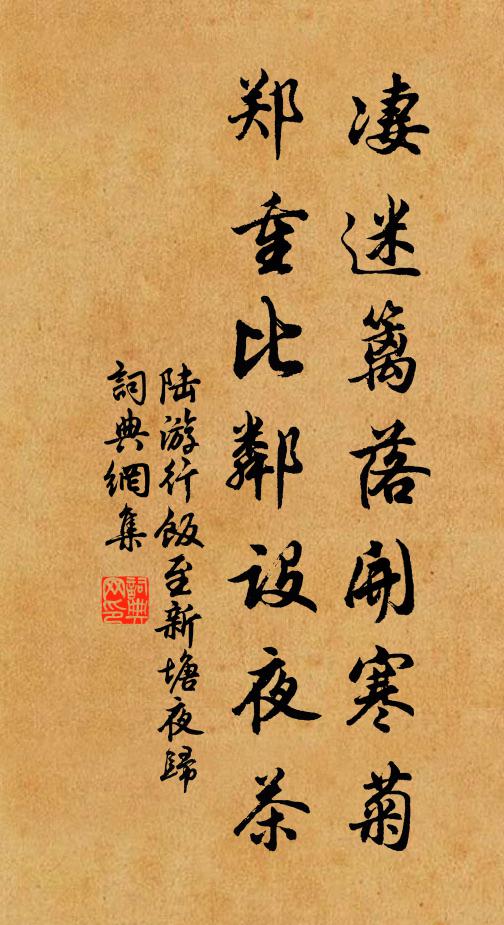 凄迷篱落開寒菊
郑重比鄰設夜茶
陆游行飯至新塘夜歸
詞典網集
詞典網印